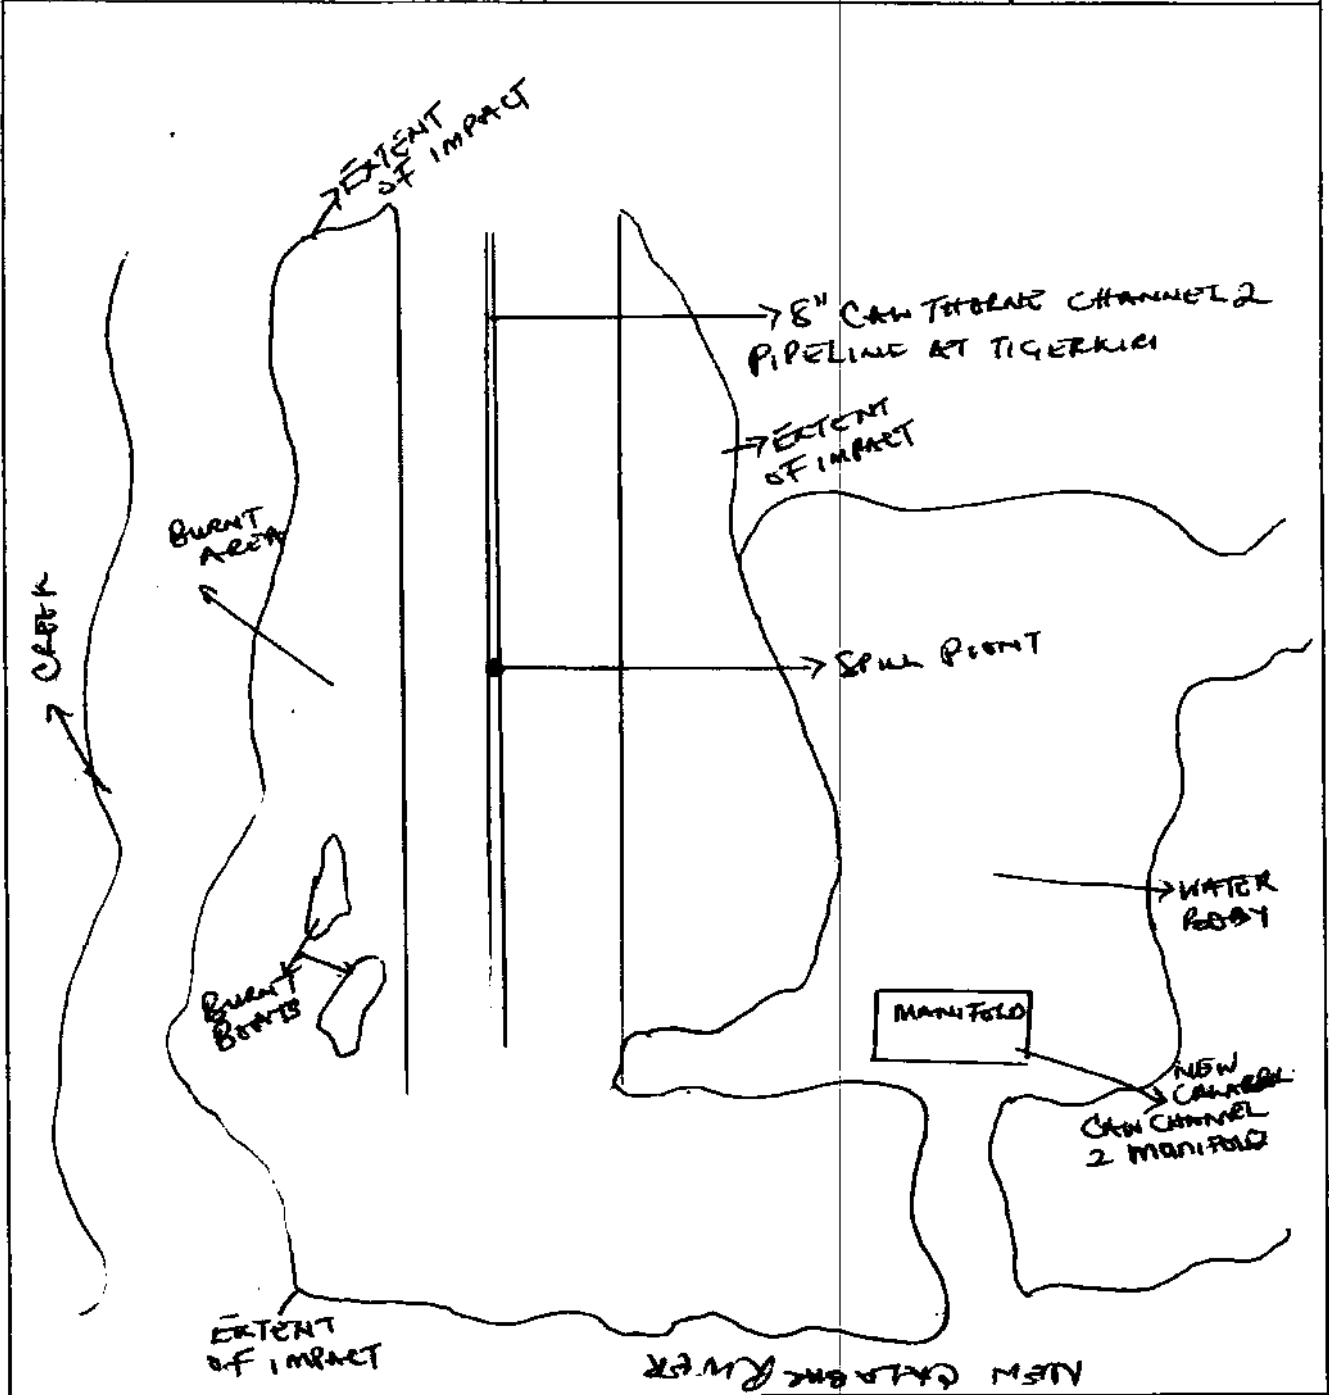 EXTENT
OF IMPACT
8" CAW THORNE CHANNEL 2
PIPELINE AT TIGERKIRI
EXTENT
OF IMPACT
BURNT
AREA
CREEK
SPILL POINT
WATER
BODY
BURNT
BOATS
MANIFOLD
NEW
CALABAR
CAW CHANNEL
2 MANIFOLD
EXTENT
OF IMPACT
NEW CALABAR RIVER